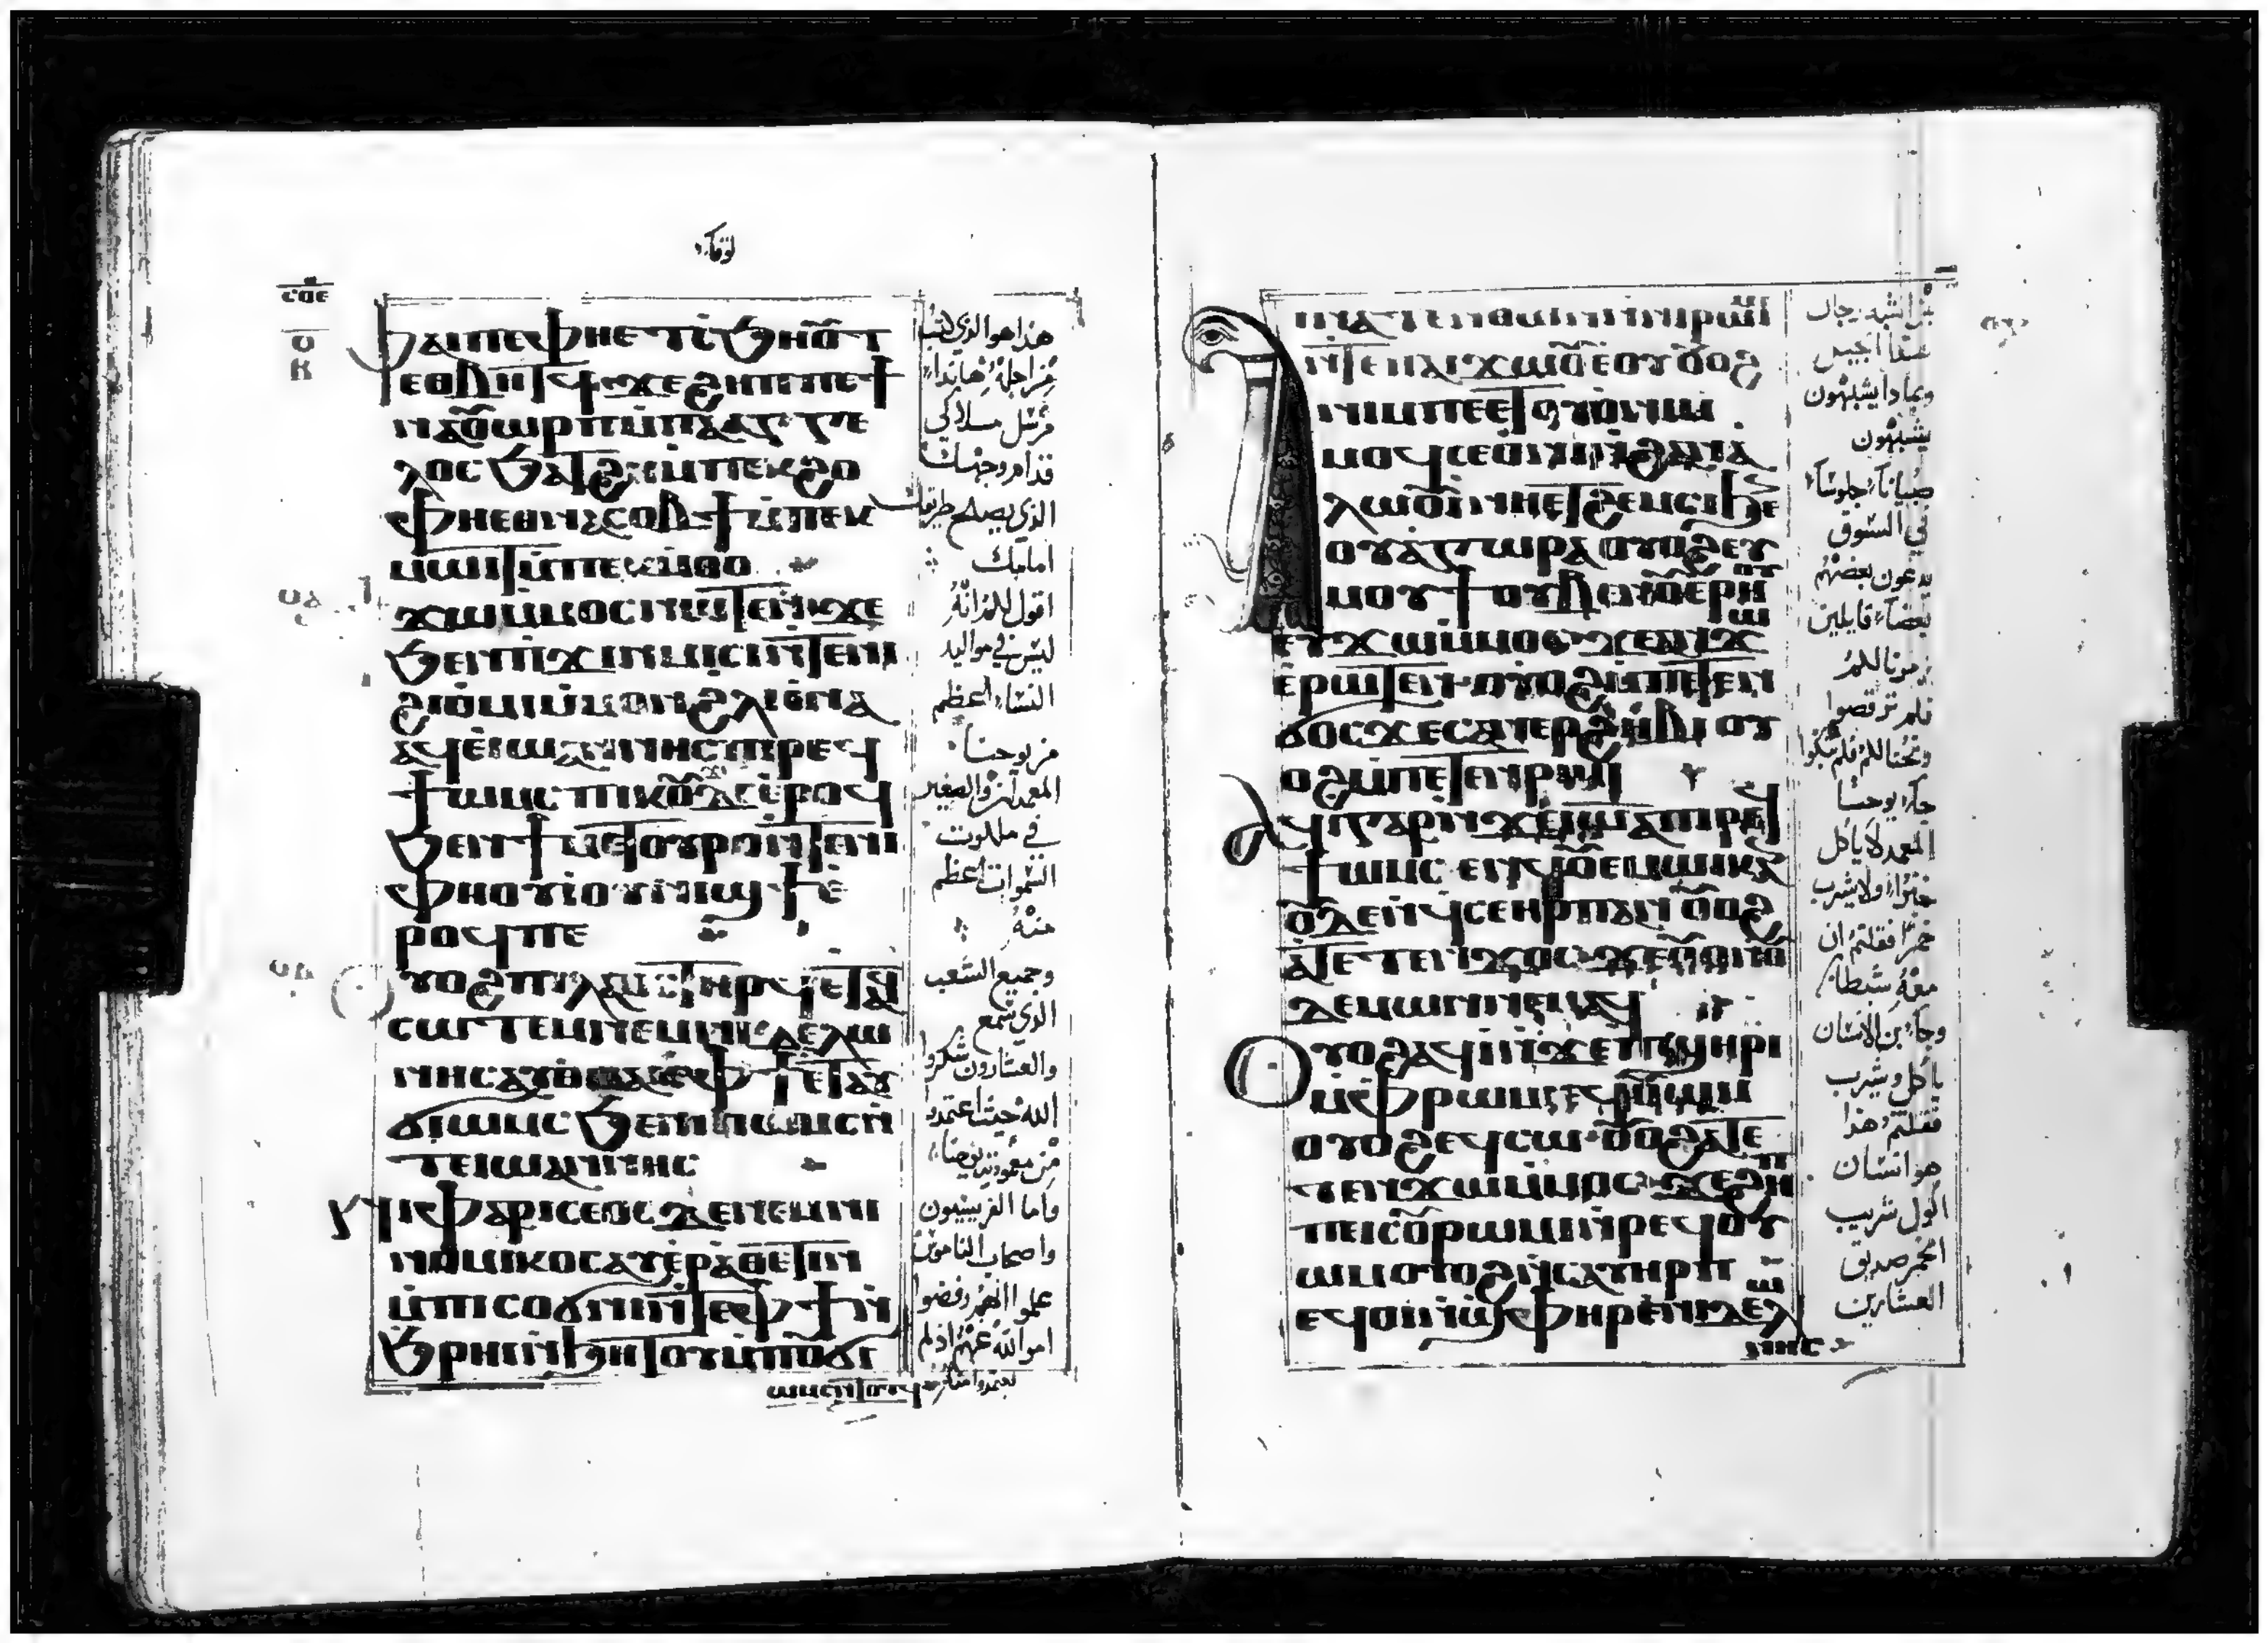 لوقا
ⲥⲟⲉ
ⲟ
ⲕ
ⲫⲁⲓⲡⲉⲫⲏⲉⲧⲥϧⲏⲟⲩⲧ
ⲉⲑⲃⲏⲧϥϫⲉϩⲏⲡⲡⲉϯ
ⲛⲁⲟⲩⲱⲣⲡⲙⲡⲁⲁⲅⲅⲉ
ⲗⲟⲥϧⲁⲧϩⲏⲙⲡⲉⲕϩⲟ
ⲫⲏⲉⲑⲛⲁⲥⲟⲃϯⲙⲡⲉⲕ
ⲙⲱⲓⲧⲙⲡⲉⲕⲙⲑⲟ
ϫⲱⲙⲙⲟⲥⲛⲱⲧⲉⲛϫⲉ
ϧⲉⲛⲛⲓϫⲓⲛⲙⲓⲥⲓⲛⲧⲉⲛⲓ
ϩⲓⲟⲙⲓⲙⲙⲟⲛϩⲗⲓⲟⲛⲁ
ⲁϥⲉⲓⲱⲁⲛⲛⲏⲥⲡⲓⲣⲉϥ
ϯⲱⲙⲥⲡⲓⲕⲟⲩϫⲓⲉⲣⲟϥ
ϧⲉⲛϯⲙⲉⲧⲟⲩⲣⲟⲛⲧⲉⲛⲓ
ⲫⲏⲟⲩⲓⲟⲩⲛⲓϣϯⲉ
ⲣⲟϥⲡⲉ
ⲟⲩⲟϩⲡⲓⲗⲁⲟⲥⲧⲏⲣϥⲉⲧⲁϥ
ⲥⲱⲧⲉⲙⲛⲉⲙⲛⲓⲧⲉⲗⲱ
ⲛⲏⲥⲁⲩⲑⲙⲁⲓⲉⲫϯⲉⲧⲁⲩ
ϭⲓⲱⲙⲥϧⲉⲛⲡⲓⲱⲙⲥⲛ
ⲧⲉⲓⲱⲁⲛⲛⲏⲥ
ⲛⲓⲫⲁⲣⲓⲥⲉⲟⲥⲇⲉⲛⲉⲙⲛⲓ
ⲛⲟⲙⲓⲕⲟⲥⲁⲩⲉⲣⲁⲑⲉⲧⲓⲛ
ⲙⲡⲓⲥⲟϭⲛⲓⲛⲧⲉⲫϯⲛ
ϧⲣⲏⲓⲛϧⲏⲧⲟⲩⲙⲡⲟⲩϭⲓ
ⲱⲙⲥⲛⲧⲟⲧϥ
هذا هو الذي كتب
من اجله هاندا
مرسل ملاكي
قدام وجهك
الذي يصلح طريقك
امامك
اقول لكم انه
ليس في مواليد
النساء اعظم
من يوحنا
المعمدان والصغير
في ملكوت
السموات اعظم
منه
وجميع الشعب
الذي سمع
والعشارون شكروا
الله حيث اعتمدوا
من معمودية يوحنا
واما الفريسيون
واصحاب الناموس
علموا انهم رفضوا
امر الله عنهم اذ لم
يعتمدوا منه
ⲛⲧⲉⲛⲑⲱⲛⲛⲓⲣⲱⲙⲓ
ⲛⲧⲉⲡⲁⲓϫⲱⲟⲩⲉⲟⲩⲟⲩⲟϩ
ⲛⲓⲙⲡⲉⲉⲧⲟⲩⲟⲛⲓⲙ
ⲙⲟϥⲥⲉⲟⲛⲓⲛϩⲁⲛⲁ
ⲗⲱⲟⲩⲓⲛⲏⲉⲧϩⲉⲙⲥⲓϧⲉⲛ
ⲟⲩⲁⲅⲱⲣⲁⲟⲩⲟϩⲉⲩ
ⲙⲟⲩϯⲟⲩⲃⲉⲛⲟⲩⲉⲣⲏⲟⲩ
ⲉⲩϫⲱⲙⲙⲟⲥϫⲉⲁⲛϫⲱ
ⲉⲣⲱⲧⲉⲛⲟⲩⲟϩⲙⲡⲉⲧⲉⲛ
ϭⲟⲥϫⲉⲥⲁⲛⲉⲣϩⲏⲃⲓⲟⲩ
ⲟϩⲙⲡⲉⲧⲉⲛⲣⲓⲙⲓ
ⲁϥⲓⲅⲁⲣⲛϫⲉⲓⲱⲁⲡⲓⲣⲉϥ
ϯⲱⲙⲥ
ⲟⲩⲟϩⲁϥⲓⲛϫⲉⲡϣⲏⲣⲓ
ⲙⲫⲣⲱⲙⲓⲉϥⲟⲩⲱⲙ
ⲟⲩⲟϩⲉϥⲥⲱⲟⲩⲟϩⲁⲧⲉ
ⲧⲉⲛϫⲱⲙⲙⲟⲥϫⲉϩⲏⲡ
ⲡⲉⲓⲥⲟⲩⲣⲱⲙⲓⲛⲣⲉϥⲟⲩ
ⲱⲙⲟⲩⲟϩⲛⲥⲁⲩⲏⲣⲡ
ⲉϥⲟⲓⲛϣⲫⲏⲣⲉⲛⲓⲧⲉⲗⲱ
ⲛⲏⲥ
بمن اشبه رجال
هذا الجيل
وبماذا يشبهون
يشبهون
صبيانا جلوسا
في السوق
يدعون بعضهم
بعضا قايلين
زمرنا لكم
فلم ترقصوا
ونحنا لكم فلم تبكوا
جاء يوحنا
المعمد لا ياكل
خبزا ولا يشرب
خمرا فقلتم ان
معه شيطان
وجاء بن الانسان
ياكل ويشرب
فقلتم هذا
هو انسان
اكول شريب
الخمر صديق
العشارين